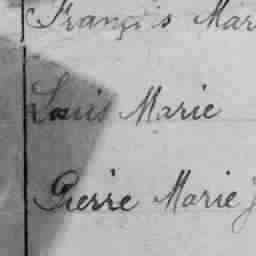 François Mar
Louis Marie
Pierre Marie J